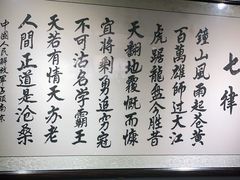 七律
鍾山風雨起蒼黄
百萬雄師過大江
虎踞龍盤今勝昔
天翻地覆慨而慷
宜將剩勇追窮寇
不可沽名學霸王
天若有情天亦老
人間正道是滄桑
中國人民解放軍占領南京